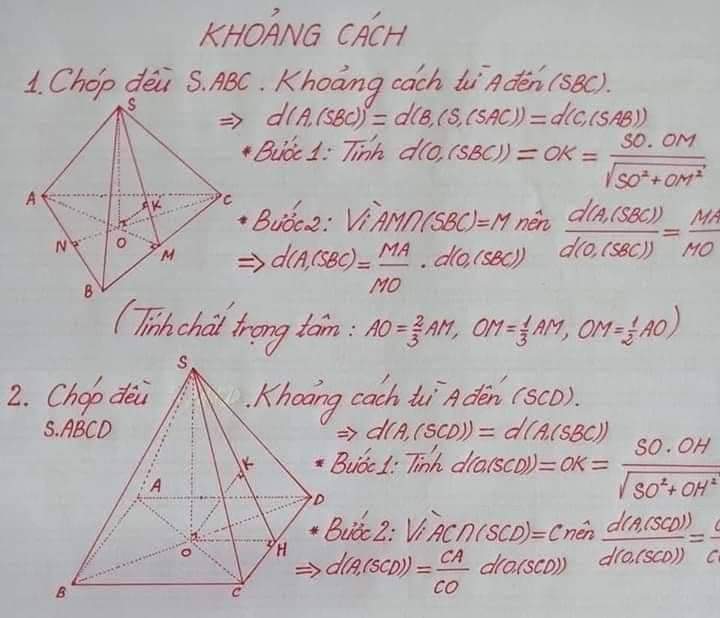 KHOẢNG CÁCH
1. Chóp đều S.ABC. Khoảng cách từ A đến (SBC).
⇒ d(A,(SBC)) = d(B,(S,(SAC)) = d(C,(SAB))
* Bước 1: Tính d(O,(SBC)) = OK = SO.OM / √SO²+OM²
* Bước 2: Vì AM∩(SBC)=M nên d(A,(SBC)) / d(O,(SBC)) = MA / MO
⇒ d(A,(SBC) = MA / MO . d(O,(SBC))
(Tính chất trọng tâm : AO = 2/3 AM, OM = 1/3 AM, OM = 1/2 AO)
S
A
K
C
N
O
M
B
2. Chóp đều
S.ABCD
. Khoảng cách từ A đến (SCD).
⇒ d(A,(SCD)) = d(A,(SBC))
* Bước 1: Tính d(O(SCD)) = OK = SO.OH / √SO²+OH²
* Bước 2: Vì AC∩(SCD)=C nên d(A,(SCD)) / d(O,(SCD)) =
⇒ d(A,(SCD)) = CA / CO d(O,(SCD))
S
K
A
D
O
H
B
C